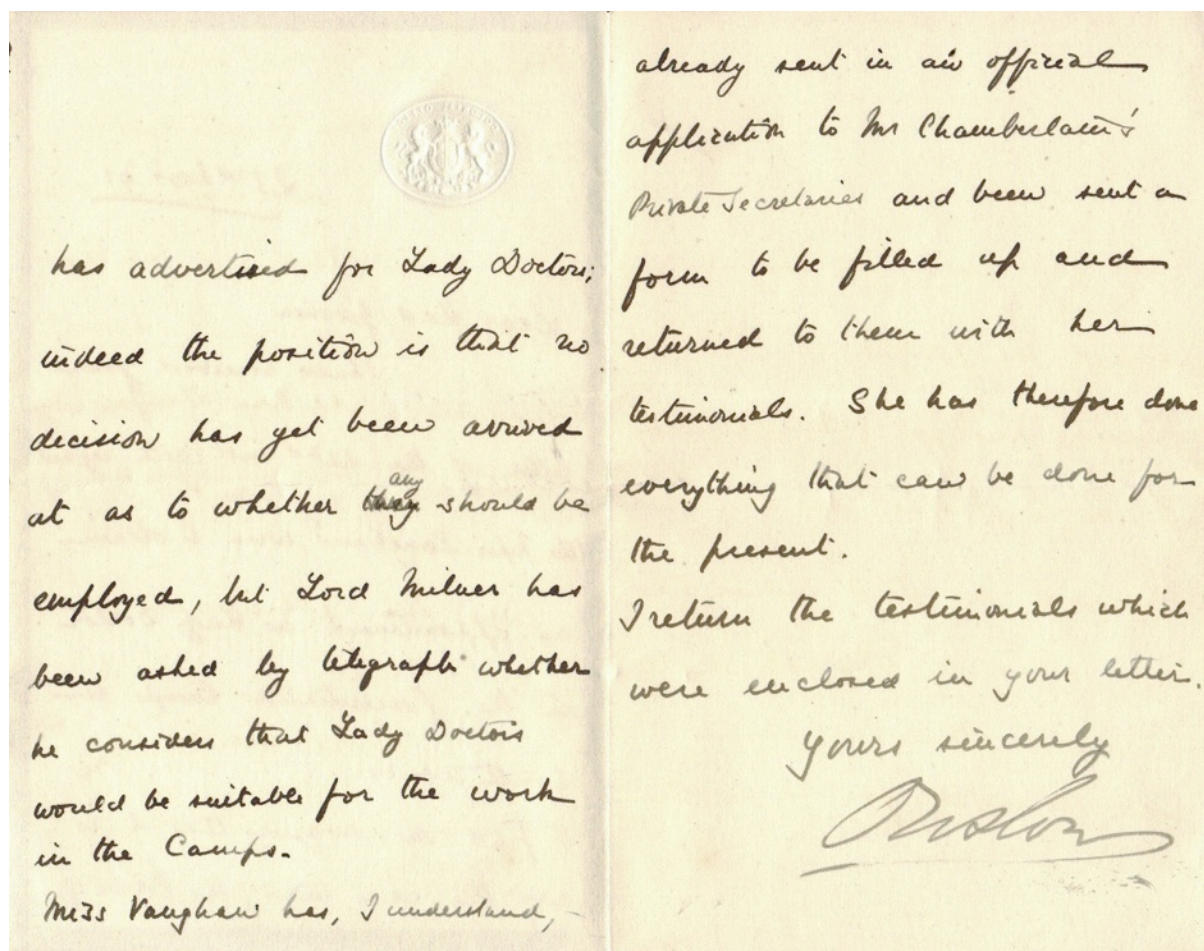 has advertised for Lady Doctors;
indeed the position is that no
decision has yet been arrived
at as to whether any should be
employed, but Lord Milner has
been asked by telegraph whether
he considers that Lady Doctors
would be suitable for the work
in the Camps.
Miss Vaughan has, I understand,
already sent in an official
application to Mr Chamberlain's
Private Secretaries and been sent a
form to be filled up and
returned to them with her
testimonials. She has therefore done
everything that can be done for
the present.
I return the testimonials which
were enclosed in your letter.
Yours sincerely
Onslow